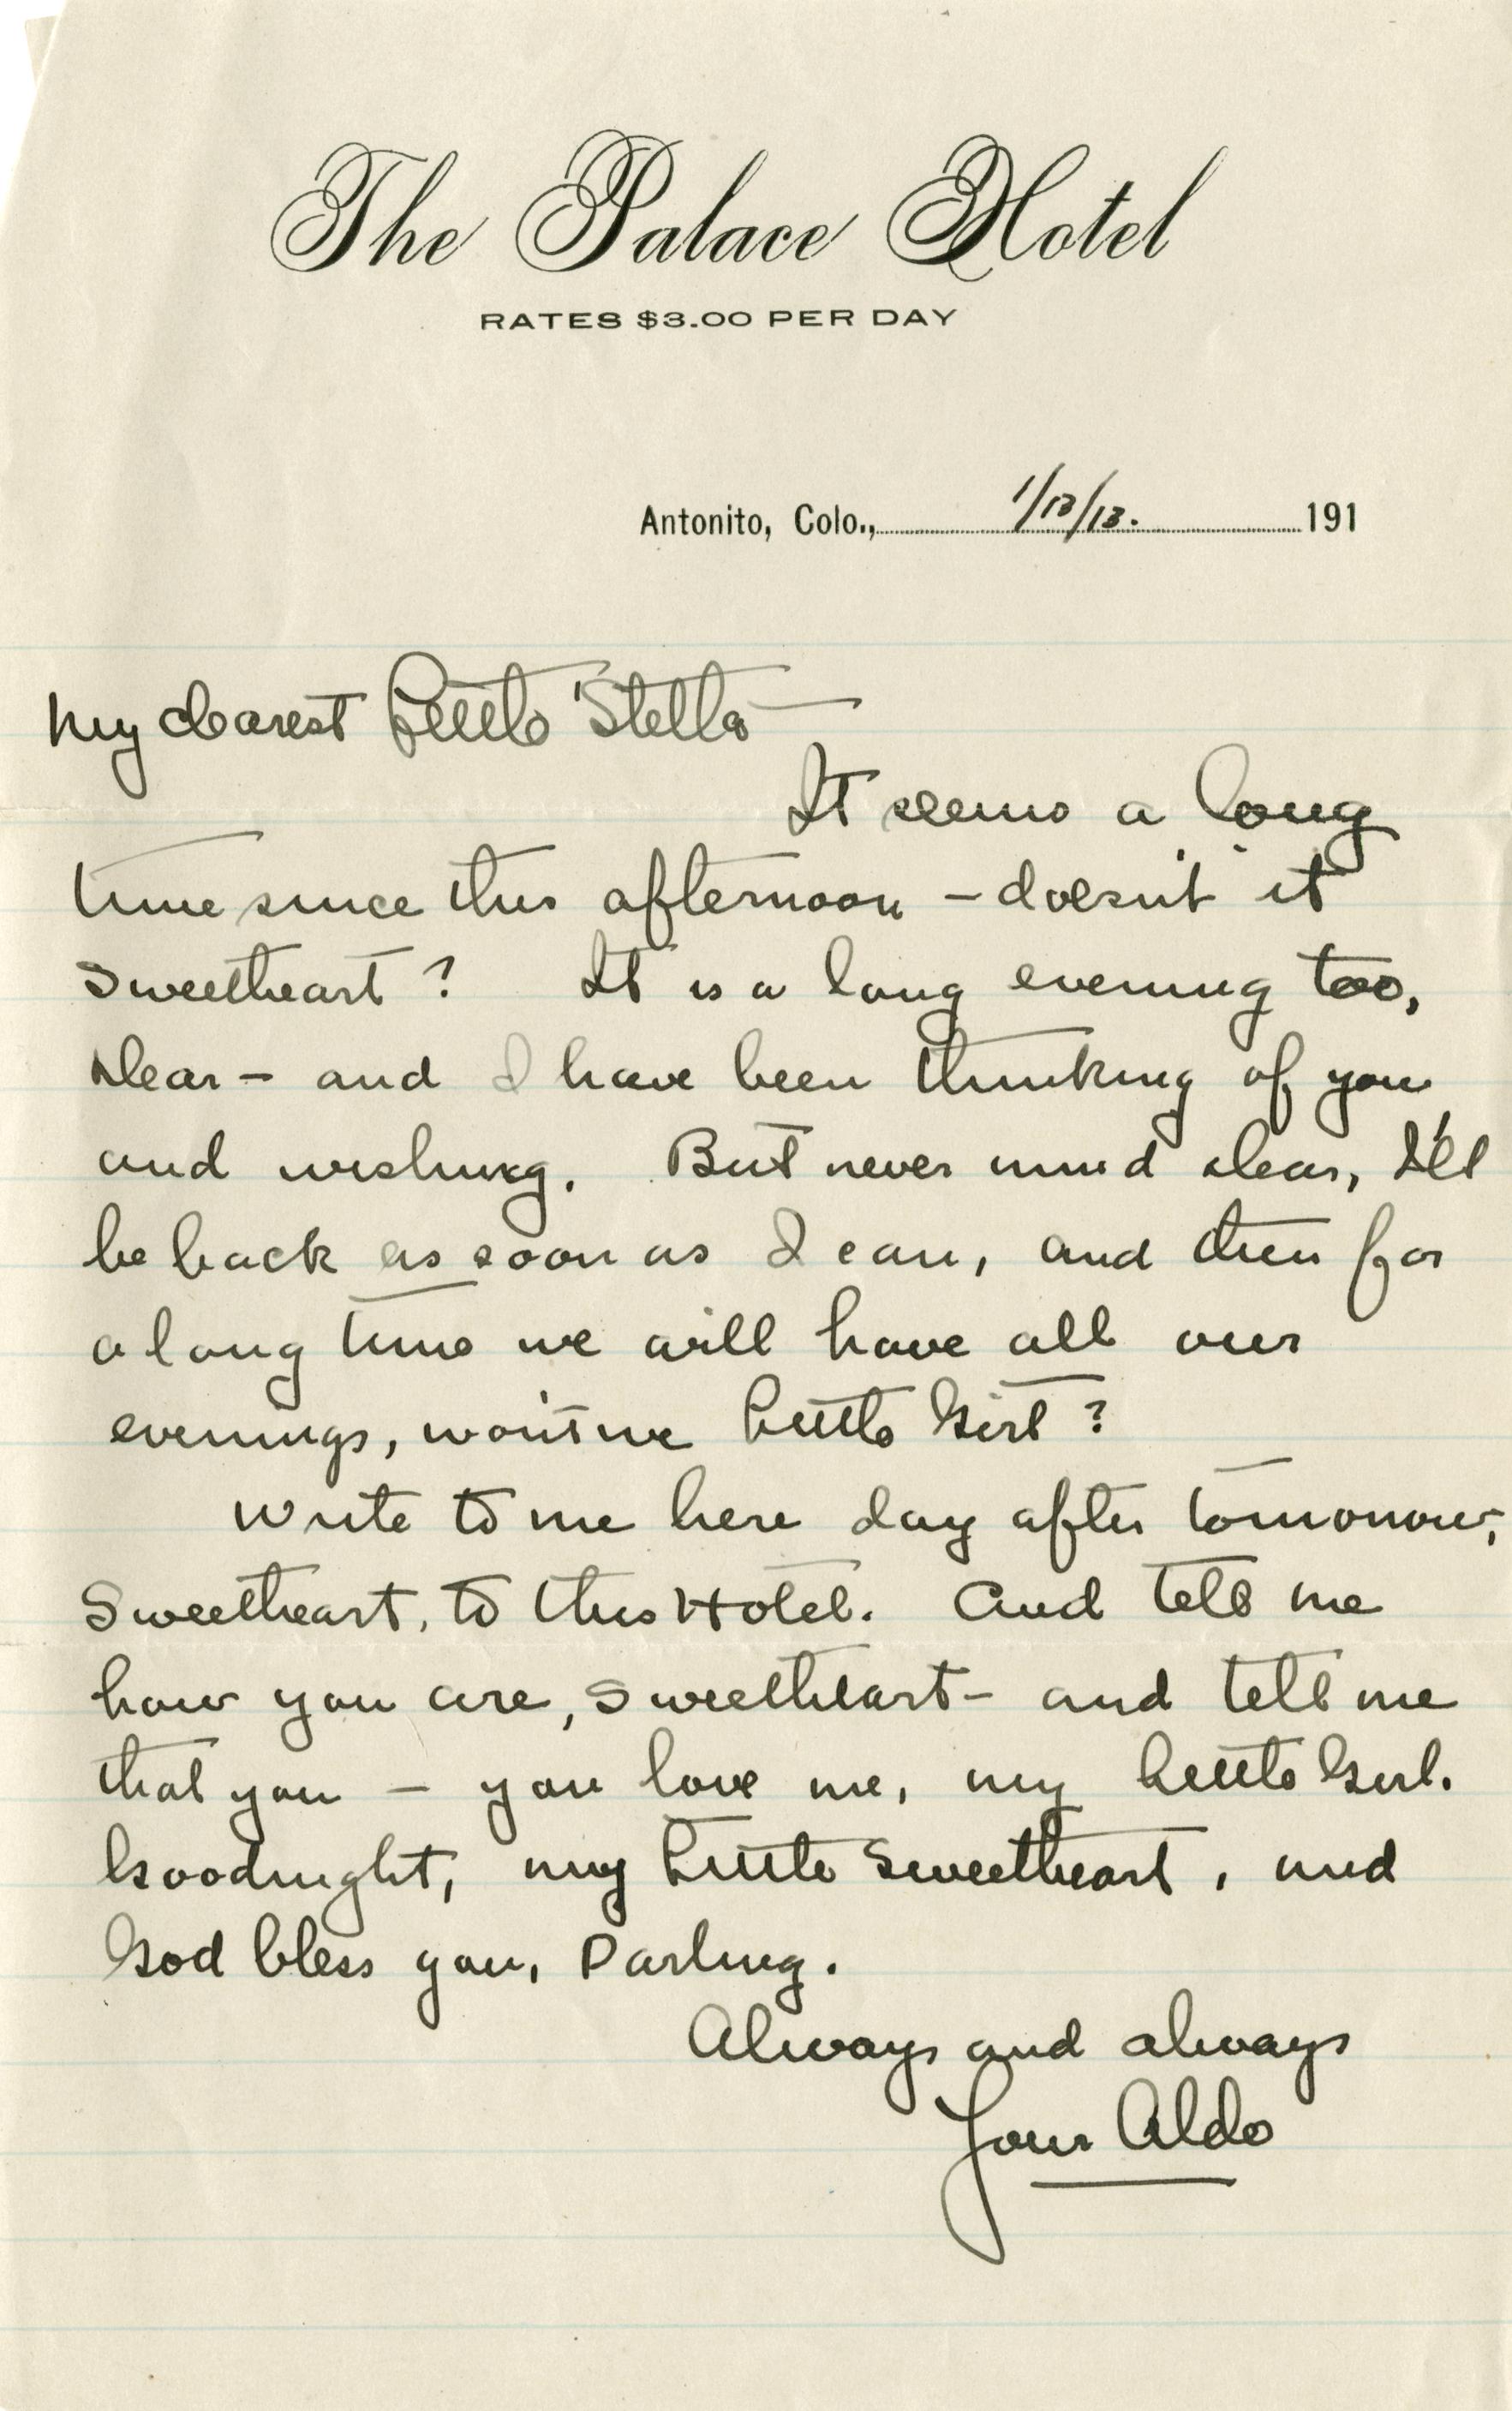 The Palace Hotel
RATES $3.00 PER DAY
Antonito, Colo., 1/13/13. 191
My dearest Little Stella—
It seems a long
time since this afternoon – doesn't it
Sweetheart? It is a long evening too,
dear – and I have been thinking of you
and wishing. But never mind dear, I'll
be back as soon as I can, and then for
a long time we will have all our
evenings, won't we Little Girl?
Write to me here day after tomorrow,
Sweetheart, to this Hotel. And tell me
how you are, Sweetheart – and tell me
that you – you love me, my Little Girl.
Goodnight, my Little Sweetheart, and
God bless you, Darling.
Always and always
Your Aldo